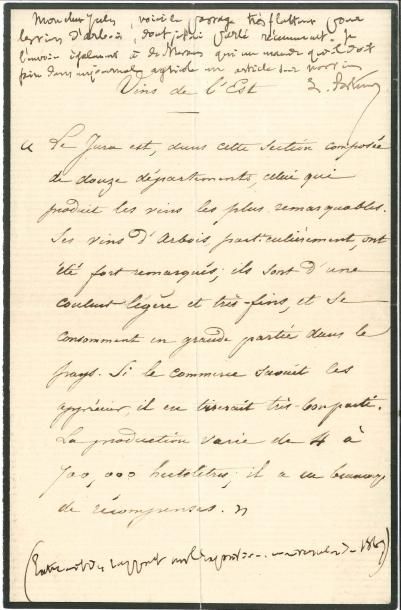 Mon cher Jules, voici le passage très flatteur pour
les vins d'arbois, dont je t'ai parlé récemment. Je
l'envoie également à de qui me mande qu'il doit
faire dans un journal agricole un article sur nos vins
Vins de l'Est L. Pasteur
« Le Jura est, dans cette section composée
de douze départements, celui qui
produit les vins les plus remarquables.
Ses vins d'Arbois, particulièrement, ont
été fort remarqués; ils sont d'une
couleur légère et très-fins, et se
consomment en grande partie dans le
pays. Si le commerce savait les
apprécier, il en tirerait très-bon parti.
La production varie de 4 à
700,000 hectolitres; il a eu beaucoup
de récompenses. »
(Extrait du rapport sur l'exposition universelle de 1867)